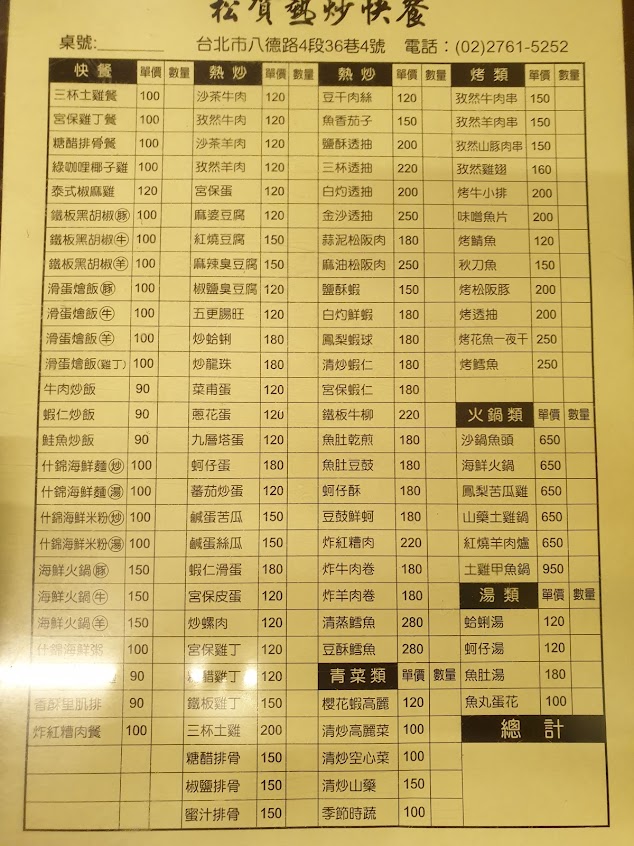 松賀熱炒快餐
桌號:________ 台北市八德路4段36巷4號 電話：(02)2761-5252
快餐 單價 數量
三杯土雞餐 100
宮保雞丁餐 100
糖醋排骨餐 100
綠咖哩椰子雞 100
泰式椒麻雞 120
鐵板黑胡椒(豚) 100
鐵板黑胡椒(牛) 100
鐵板黑胡椒(羊) 100
滑蛋燴飯(豚) 100
滑蛋燴飯(牛) 100
滑蛋燴飯(羊) 100
滑蛋燴飯(雞丁) 100
牛肉炒飯 90
蝦仁炒飯 90
鮭魚炒飯 90
什錦海鮮麵(炒) 100
什錦海鮮麵(湯) 100
什錦海鮮米粉(炒) 100
什錦海鮮米粉(湯) 100
海鮮火鍋(豚) 150
海鮮火鍋(牛) 150
海鮮火鍋(羊) 150
什錦海鮮粥 100
90
香酥里肌排 90
炸紅糟肉餐 100
熱炒 單價 數量
沙茶牛肉 120
孜然牛肉 120
沙茶羊肉 120
孜然羊肉 120
宮保蛋 120
麻婆豆腐 120
紅燒豆腐 150
麻辣臭豆腐 150
椒鹽臭豆腐 120
五更腸旺 120
炒蛤蜊 180
炒龍珠 180
菜甫蛋 120
蔥花蛋 120
九層塔蛋 120
蚵仔蛋 180
蕃茄炒蛋 120
鹹蛋苦瓜 150
鹹蛋絲瓜 150
蝦仁滑蛋 180
宮保皮蛋 120
炒螺肉 120
宮保雞丁 120
糖醋雞丁 120
鐵板雞丁 150
三杯土雞 200
糖醋排骨 150
椒鹽排骨 150
蜜汁排骨 150
熱炒 單價 數量
豆干肉絲 120
魚香茄子 150
鹽酥透抽 200
三杯透抽 220
白灼透抽 200
金沙透抽 250
蒜泥松阪肉 180
麻油松阪肉 250
鹽酥蝦 150
白灼鮮蝦 180
鳳梨蝦球 180
清炒蝦仁 180
宮保蝦仁 180
鐵板牛柳 220
魚肚乾煎 180
魚肚豆鼓 180
蚵仔酥 180
豆鼓鮮蚵 180
炸紅糟肉 220
炸牛肉卷 180
炸羊肉卷 180
清蒸鱈魚 280
豆酥鱈魚 280
青菜類 單價 數量
櫻花蝦高麗 120
清炒高麗菜 100
清炒空心菜 100
清炒山藥 150
季節時蔬 100
烤類 單價 數量
孜然牛肉串 150
孜然羊肉串 150
孜然山豚肉串 150
孜然雞翅 160
烤牛小排 200
味噌魚片 200
烤鯖魚 120
秋刀魚 150
烤松阪豚 200
烤透抽 200
烤花魚一夜干 250
烤鱈魚 250
火鍋類 單價 數量
沙鍋魚頭 650
海鮮火鍋 650
鳳梨苦瓜雞 650
山藥土雞鍋 650
紅燒羊肉爐 650
土雞甲魚鍋 950
湯類 單價 數量
蛤蜊湯 120
蚵仔湯 120
魚肚湯 180
魚丸蛋花 100
總計